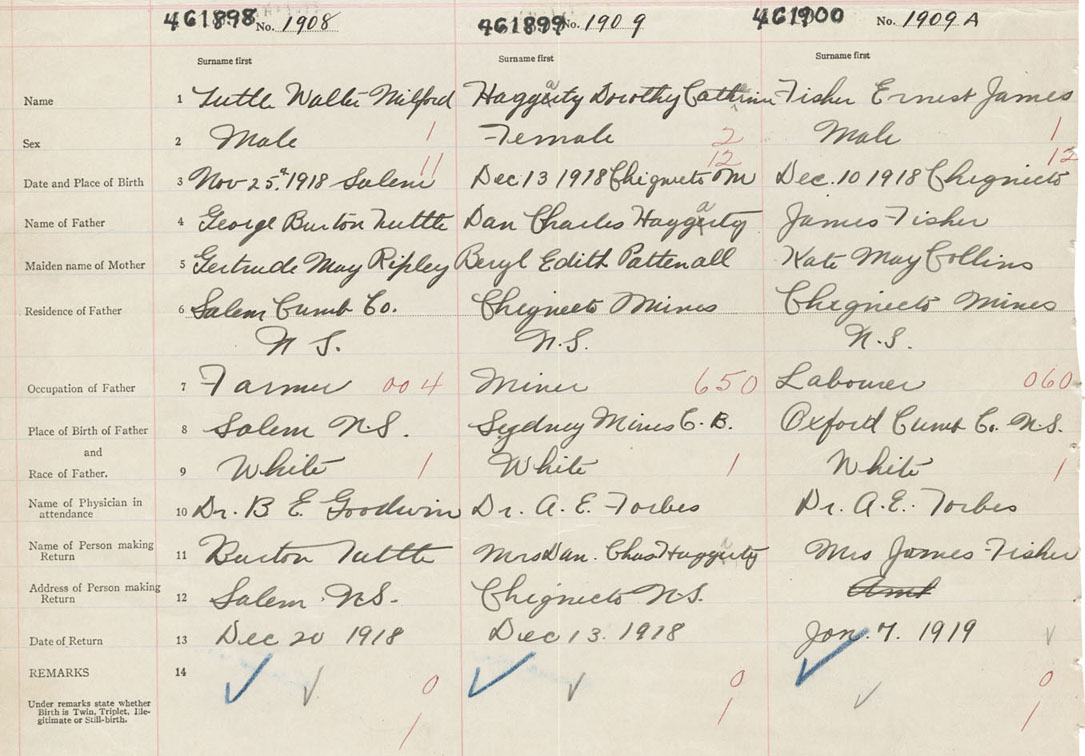 461898 No. 1908 461899 No. 1909 461900 No. 1909 A
Surname first Surname first Surname first
Name 1 Tuttle Walter Milford Haggerty Dorothy Cathrine Fisher Ernest James
Sex 2 Male 1 Female 2 Male 1
Date and Place of Birth 3 Nov 25th 1918 Salem 11 Dec 13 1918 Chignecto M 12 Dec. 10 1918 Chignecto 12
Name of Father 4 George Burton Tuttle Dan Charles Haggerty James Fisher
Maiden name of Mother 5 Gertrude May Ripley Beryl Edith Pattenall Kate May Collins
Residence of Father 6 Salem Cumb Co. Chignecto Mines Chignecto Mines
N S. N.S. N.S.
Occupation of Father 7 Farmer 004 Miner 650 Labourer 060
Place of Birth of Father 8 Salem N.S. Sydney Mines C.B. Oxford Cumb Co. N.S.
and
Race of Father. 9 White 1 White 1 White 1
Name of Physician in attendance 10 Dr. B E. Goodwin Dr. A. E. Forbes Dr. A.E. Forbes
Name of Person making Return 11 Burton Tuttle Mrs Dan. Chas Haggerty Mrs James Fisher
Address of Person making Return 12 Salem N.S. Chignecto N.S. Amt
Date of Return 13 Dec 20 1918 Dec 13. 1918 Jan. 7. 1919
REMARKS 14 0 0 0
Under remarks state whether Birth is Twin, Triplet, Ille-
gitimate or Still-birth. 1 1 1